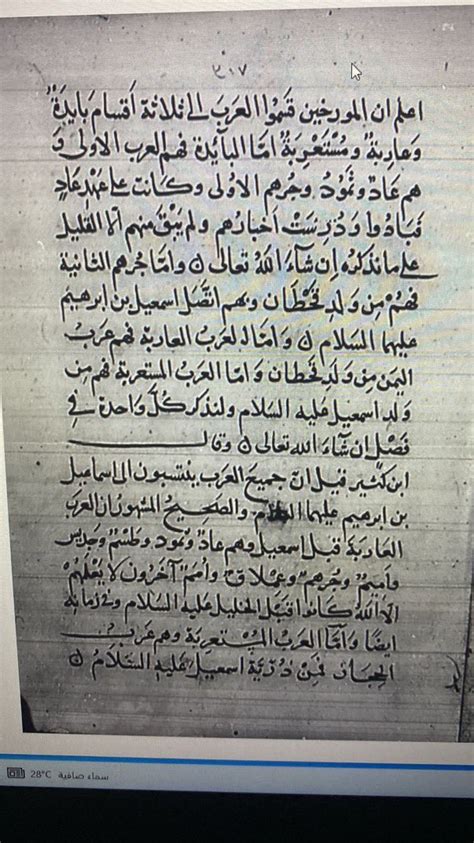 ٧٠٢
اعلم ان المورخين قسموا العرب الى ثلاثة أقسام بَايدَةٌ
وَعاربةٌ ومُسْتَعْرِبَةٌ امّا البآئدة فهم العرب الاولى وَ
هم عَادٌ وثمُودُ وجُرهم الاولى وكانت على عَهْدِ عَادٍ
فبَادُوا وَدُرِسَتْ أخبَارُهم ولم يَبْقَ منهم الا القليل
على ما نذكره إن شآءَ اللهُ تعالى ن وَامّا جُرهم الثانية
فهُمْ مِن وَلَدِ قحْطَان وبهم اتّصَل اسمعيل بن ابرهيم
عليهما السّلام ن وَامّا العرَبُ العَاربَة فهم عَربُ
اليمن مِن وَلدِ قحطان وَامّا العرَب المستعربة فهم مِن
ولد اسمعيل عليه السّلام ولنذكر كلّ وَاحدة في
فصْل إن شاءَ الله تعالى ن وقال
ابن كثير قيل انّ جميع العرَب ينتسبون الى اسماعيل
بن ابرهيم عليهما السلام والصّحِيحُ المشهور ان العرَبَ
العَاربَة قبل اسمعيل وهم عادٌ وثمود وطسْمٌ وجَديس
وَاميمٌ وجُرهمٌ وعملاق وَاممٌ آخرُون لا يَعْلمُهُمْ
الا الله كانوا قبَل الخليل عليه السلام وفي زمانِه
ايضًا وَامّا العَربُ المسْتعربَة وهم عَربُ
الحجاز فمِنْ ذُرّيّة اسمعيل عليه السّلام ن
28°C سماء صافية